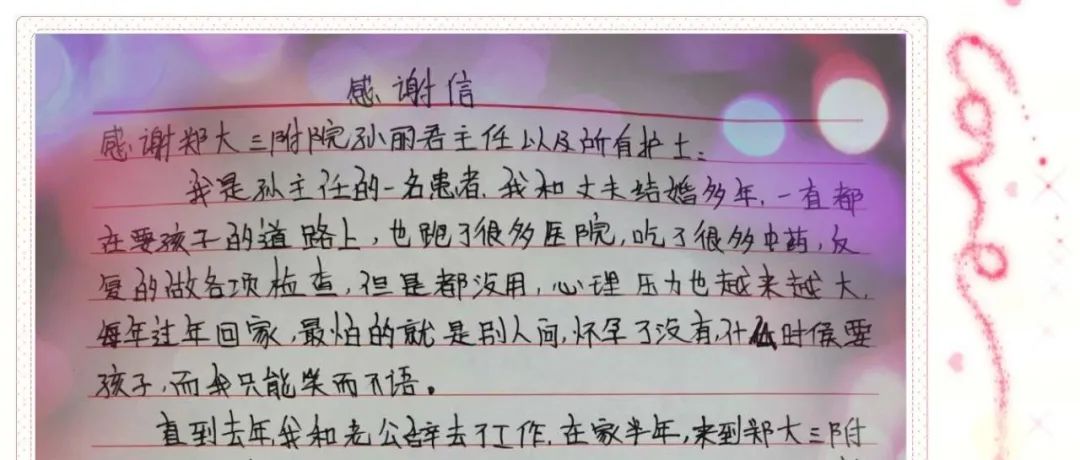 感谢信
感谢郑大三附院孙丽君主任以及所有护士:
我是孙主任的一名患者,我和丈夫结婚多年,一直都
在要孩子的道路上,也跑了很多医院,吃了很多中药,反
复的做各项检查,但是都没用,心理压力也越来越大,
每年过年回家,最怕的就是别人问,怀孕了没有,什么时候要
孩子,而我只能笑而不语。
直到去年,我和老公辞去了工作,在家半年,来到郑大三附
Love